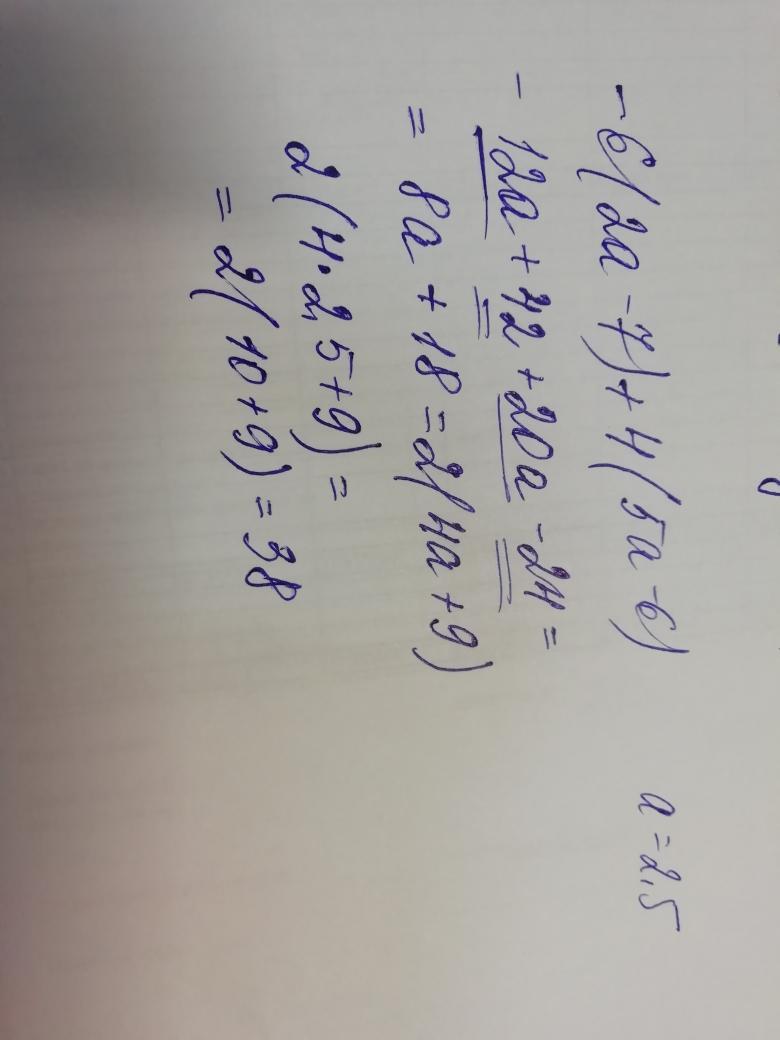 -6(2a-7)+4(5a-6) a=2,5
-12a+42+20a-24=
=8a+18=2(4a+9)
2(4·2,5+9)=
=2(10+9)=38